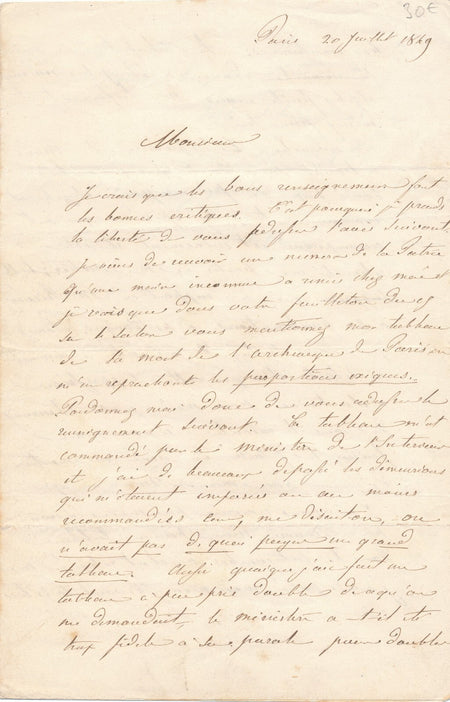 30€
Paris 20 Juillet 1849
Monsieur
Je crois que les bons renseignemens font
les bonnes critiques. C'est pourquoi je prends
la liberté de vous adresser l'avis suivant.
Je viens de recevoir un numero de la Patrie
qu'une main inconnue a remis chez moi et
je vois que dans votre feuilleton du
sur le Salon vous mentionnez mon tableau
de la mort de l'archevêque de Paris en
m'en reprochant les proportions exigues.
Pardonnez moi donc de vous adresser le
renseignement suivant. Ce tableau m'est
commandé par le ministère de l'Interieur
et j'ai de beaucoup depassé les dimensions
qui m'étaient imposées ou au moins
recommandées car, me disait on, on
n'avait pas de quoi payer un grand
tableau. Aussi quoique j'aie fait un
tableau à peu près double de ce qu'on
me demandait, le ministère a-t-il été
trop fidele à sa parole pour doubler